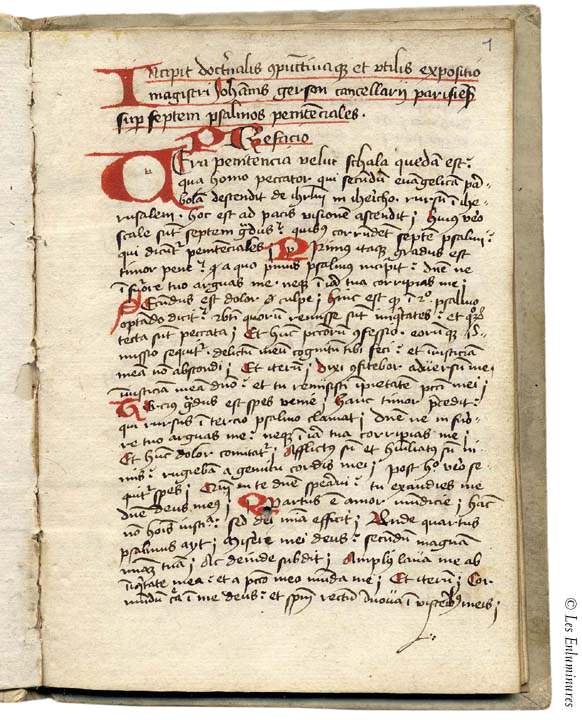 1
Incipit doctrinalis conpunctivaque et utilis expositio
magistri Johannis gerson cancellarij parisiensis
super septem psalmos penitenciales.
Prefacio
Vera penitencia velut schala quedam est
qua homo peccator qui secundum euangelicam para
bolam descendit de ihrlm in ihericho. rursum in ihe
rusalem. hoc est ad pacis visionem ascendit / huius vero
scale sunt septem gradus quibus correspondent septem psalmi
qui dicuntur penitenciales / Primus itaque gradus est
timor pene a quo primus psalmus incipit domine ne
in furore tuo arguas me. neque in ira tua corripias me /
Secundus est dolor de culpa / hinc est quod in 2o psalmo
optando dicitur beati quorum remisse sunt iniquitates et quorum
tecta sunt peccata / Et hunc peccatorum confessio. eorumque re
missio sequitur. delictum meum cognitum tibi feci et iniusticiam
mea non abscondi / Et iterum / dixi confitebor adversum me
iniusticiam meam domino et tu remisisti impietatem peccati mei /
Tercius gradus est spes venie / hanc timor precedit
qui rursus in tercio psalmo clamat / domine ne in furo
re tuo arguas me neque in ira tua corripias me /
Et hunc dolor comitatur / Afflictus sum et humiliatus sum ni
mis rugiebam a gemitu cordis mei / post hec vero se
quitur spes / Quoniam in te domine speravi tu exaudies me
domine deus meus / Quartus est amor mundicie / hanc
non hominis iusticia sed dei misericordia efficit / Unde quartus
psalmus ayt / Miserere mei deus secundum magnam
misericordiam tuam / Ac deinde subdit / Amplius lava me ab
iniquitate mea et a peccato meo munda me / Et iterum / Cor
mundum crea in me deus et spiritum rectum innova in visceribus meis /
© Les Enluminures